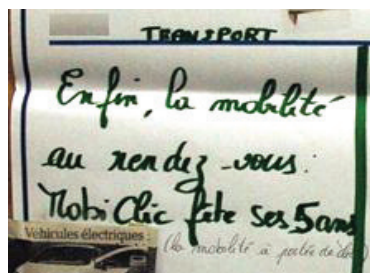 TRANSPORT
Enfin, la mobilité
au rendez-vous :
Mobi Clic fête ses 5 ans
Véhicules électriques
(la mobilité à portée de clic)